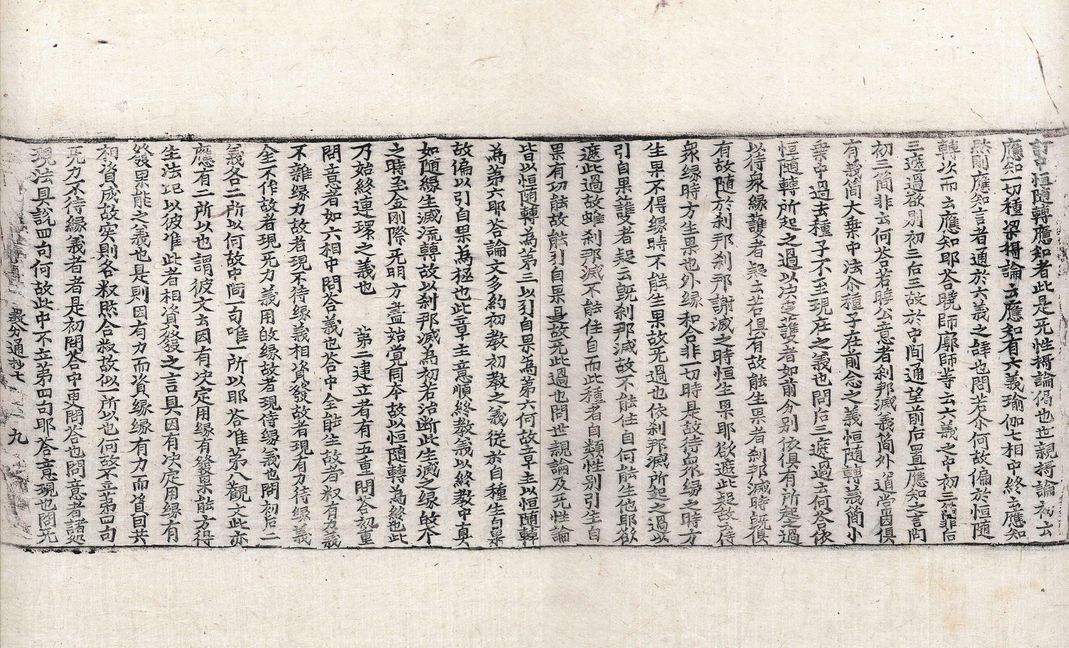 恒隨轉應知者此是无性攝論偈也世親攝論初云
應知一切種梁攝論云應知有六義瑜伽七相中終云應知
然則應知言者通於六義之詳也問若尒何故偏於恒隨
轉次而云應知耶答曉師廓師等云六義之中初三
三遮過故別初三后三故於中間通望前后置應知之言問
初三簡非云何答若聰公意者刹那滅義簡外道常因俱
有義簡大乗中法尒種子在前念之義恒隨轉義簡小
乗中過去種子不至現在之義也問后三遮過云何答依
恒隨轉所起之過以決定護者如前分別依俱有所起之過
以待衆緣護者疑云若俱有故能生果者刹那滅時旣俱
有故隨於刹那刹那謝滅之時恒生果耶欲遮此疑故待
衆緣時方生果也外緣和合非一切時是故待衆緣之時方
生果不得緣時不能生果故无過也依刹那滅所起之過以
引自果護者疑云旣刹那滅故不能住自何能生他耶欲
遮此過故雖刹那滅不能住自而此種者自類性別引生自
果有功能故能引自果是故无此過也問世親論及无性論
皆以恒隨轉為第三以引自果為第六何故章主以恒隨轉
為第六耶答論文多約初教初教之義從於自種生自果
故偏以引自果為極也此章主意順終教義以終教中真
如隨緣生滅流轉故以刹那滅為初若治斷此生滅之緣故
之時至金刚際无明方盡始覺同本故以恒隨轉為終也此
乃始終連環之義也　　第二建立者有五重問答初重
問意者如六相中問答義也答中全能生故者有力義
不雜緣力故者現不待緣義相資發故者現有力待緣義
全不作故者現无力義用的緣故者現待緣義也問初后二
義各二所以何故中間一句唯一所以耶答准茅入觀文此亦
應有二所以也謂彼文云因有決定用緣有發果能方得
生法記以彼准此者相資發之言具因有決定用緣有
發果能之義也是則因有力而資緣緣有力而資因共
初資成故實則各故似一所以也何故不立苐四句
无力不待緣義者是初問答中更問答也問意者諸
現法具說四句何故此中不立苐四句耶答意現也問无
義分通抄七　　九